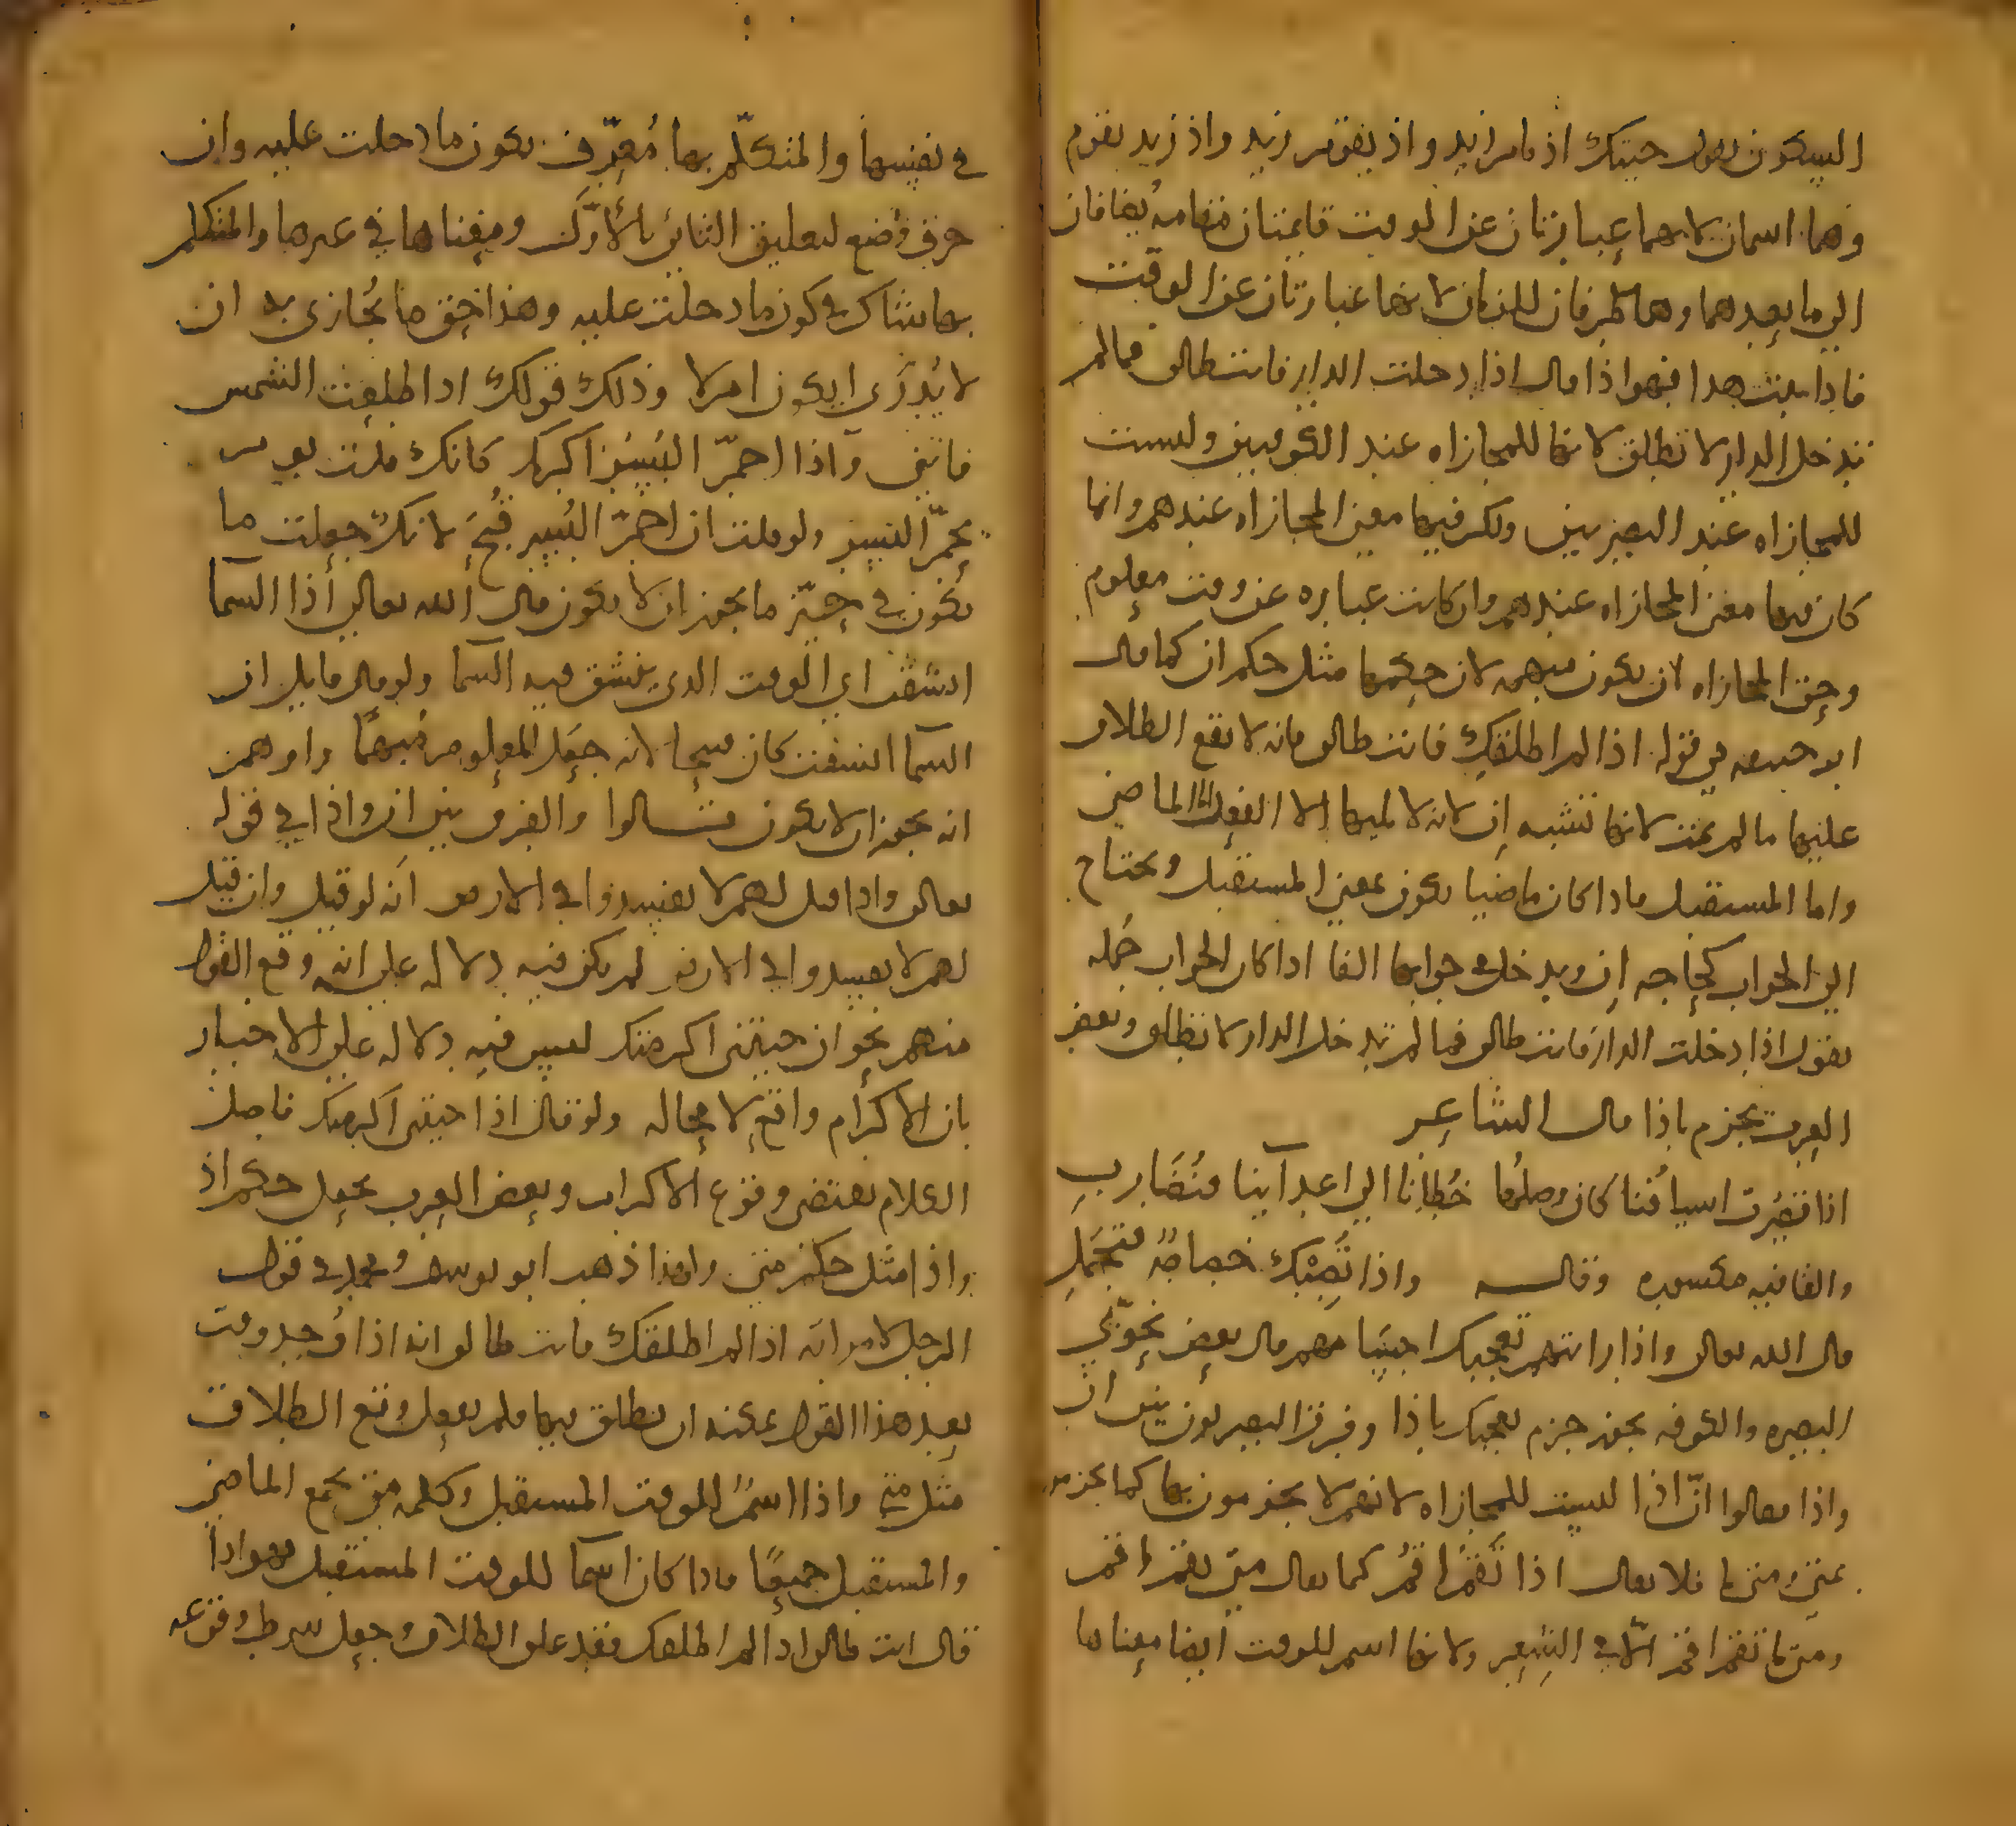 السكون تقول جئتك اذ قام زيد واذ يقوم زيد واذ زيد يقوم
وهما اسمان لانهما عبارتان عن الوقت قايمتان مقامه يضافان
الى ما بعدهما وهما ظرفان للزمان لانهما عبارتان عن الوقت
فاذا ثبت هذا فهو اذا قال اذا دخلت الدار فانت طالق فما لم
تدخل الدار لا تطلق لانها للمجازاه عند الكوفيين وليست
للمجازاه عند البصريين ولكن فيها معنى المجازاه عندهم وانما
كان فيها معنى المجازاه عندهم وان كانت عباره عن وقت معلوم
وحق المجازاه ان تكون مبهمه لان حكمها مثل حكم ان كما قال
ابو حنيفه في قوله اذا لم اطلقك فانت طالق فانه لا يقع الطلاق
عليها ما لم يمت لانها تشبه ان لانه لا يليها الا الفعل الماضي
واما المستقبل فاذا كان ماضيا يكون بمعنى المستقبل ويحتاج
الى الجواب كحاجه ان ويدخل في جوابها الفا اذا كان الجواب جمله
يقول اذا دخلت الدار فانت طالق فما لم تدخل الدار لا تطلق وبعض
العرب يجزم باذا قال الشاعر
اذا قصرت اسيافنا كان وصلها خطانا الى اعدآينا فنضارب
والقافيه مكسوره وقال واذا تصبك خصاصة فتجمل
قال الله تعالى واذا رايتهم تعجبك اجسامهم قال بعض نحويي
البصره والكوفه يجوز جزم تعجبك باذا وفرق البصريون بين ان
واذا فقالوا انّ اذا ليست للمجازاه لانهم لا يجزمون بها كما يجزمون
بمتى ومتى ما فلا يقال اذا تقم اقم كما يقال متى تقم اقم
ومتى ما تقم اقم الّا في الشعر ولانها اسم للوقت ايضا معناها
في نفسها والمتكلّم بها مُعرّف بكون ما دخلت عليه وان
حرف وضع لتعليق الثاني بالاول ومعناها في غيرها والمتكلم
بها شاك في كون ما دخلت عليه وهذا حق ما يُجازى به ان
لا يُدرَى ايكون ام لا وذلك قولك اذا طلعت الشمس
فاتني واذا احمرّ البُسر اكرمك كانك قلت يوم
يحمرّ البسر ولو قلت ان احمرّ البسر قبُحَ لانك جعلت ما
يكون في حيّز ما يجوز ان لا يكون قال الله تعالى اذا السمآ
انشقت اي الوقت الذي ينشق فيه السمآ ولو قال قايل ان
السمآ انشقت كان قبيحا لانه جعل المعلوم مُبهمًا واوهم
انه يجوز ان لا يكون فقالوا والفرق بين ان واذا في قوله
تعالى واذا قيل لهم لا تفسدوا في الارض انه لو قيل وان قيل
لهم لا تفسدوا في الارض لم يكن فيه دلاله على انه وقع القول
منهم نحو ان جيتني اكرمتك ليس فيه دلاله على الاخبار
بان الاكرام واقع لا محاله ولو قال اذا جيتني اكرمتك فاصل
الكلام يقتضي وقوع الاكرام وبعض العرب يجعل حكم اذ
واذا مثل حكم متى ولهذا ذهب ابو يوسف ومحمد في قول
الرجل لامراته اذا لم اطلقك فانت طالق انه اذا وُجد وقت
بعد هذا القول يمكنه ان يطلق فيها فلم يفعل وقع الطلاق
مثل متى واذا اسمٌ للوقت المستقبل وكلمه متى تجمع الماضي
والمستقبل جميعًا فاذا كان اسما للوقت المستقبل فهو اذا
قال انت طالق اذا لم اطلقك فقد علق الطلاق وجعل شرط وقوعه